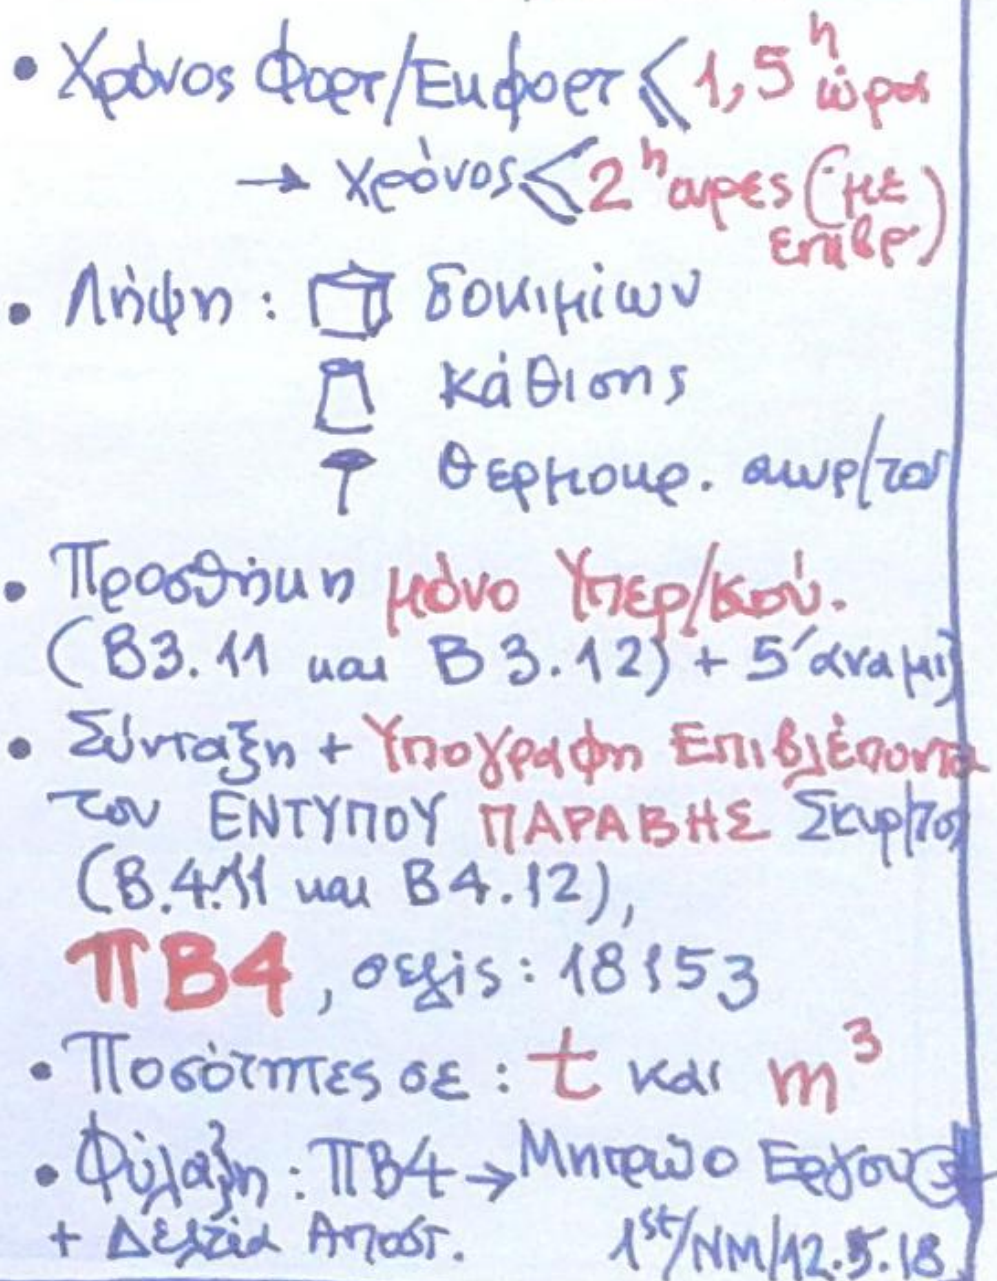 • Χρόνος Φορτ/Εκφορτ ⩽ 1,5 h ώρα
→ Χρόνος ⩽ 2 h ώρες (με
επιβρ)
• Λήψη : δοκιμίων
κάθισης
θερμοκρ. σκυρ/τος
• Προσθήκη μόνο Υπερ/κού.
(Β3.11 και Β3.12) + 5' αναμι
• Σύνταξη + Υπογραφη Επιβλέποντα
του ΕΝΤΥΠΟΥ ΠΑΡΑΒΗΣ Σκυρ/τος
(Β.4.11 και Β4.12),
ΠΒ4, σελίς : 18153
• Ποσότητες σε : t και m³
• Φύλαξη : ΠΒ4 → Μητρώο Εργου
+ Δελτία Αποστ. 1st/NM/12.5.18